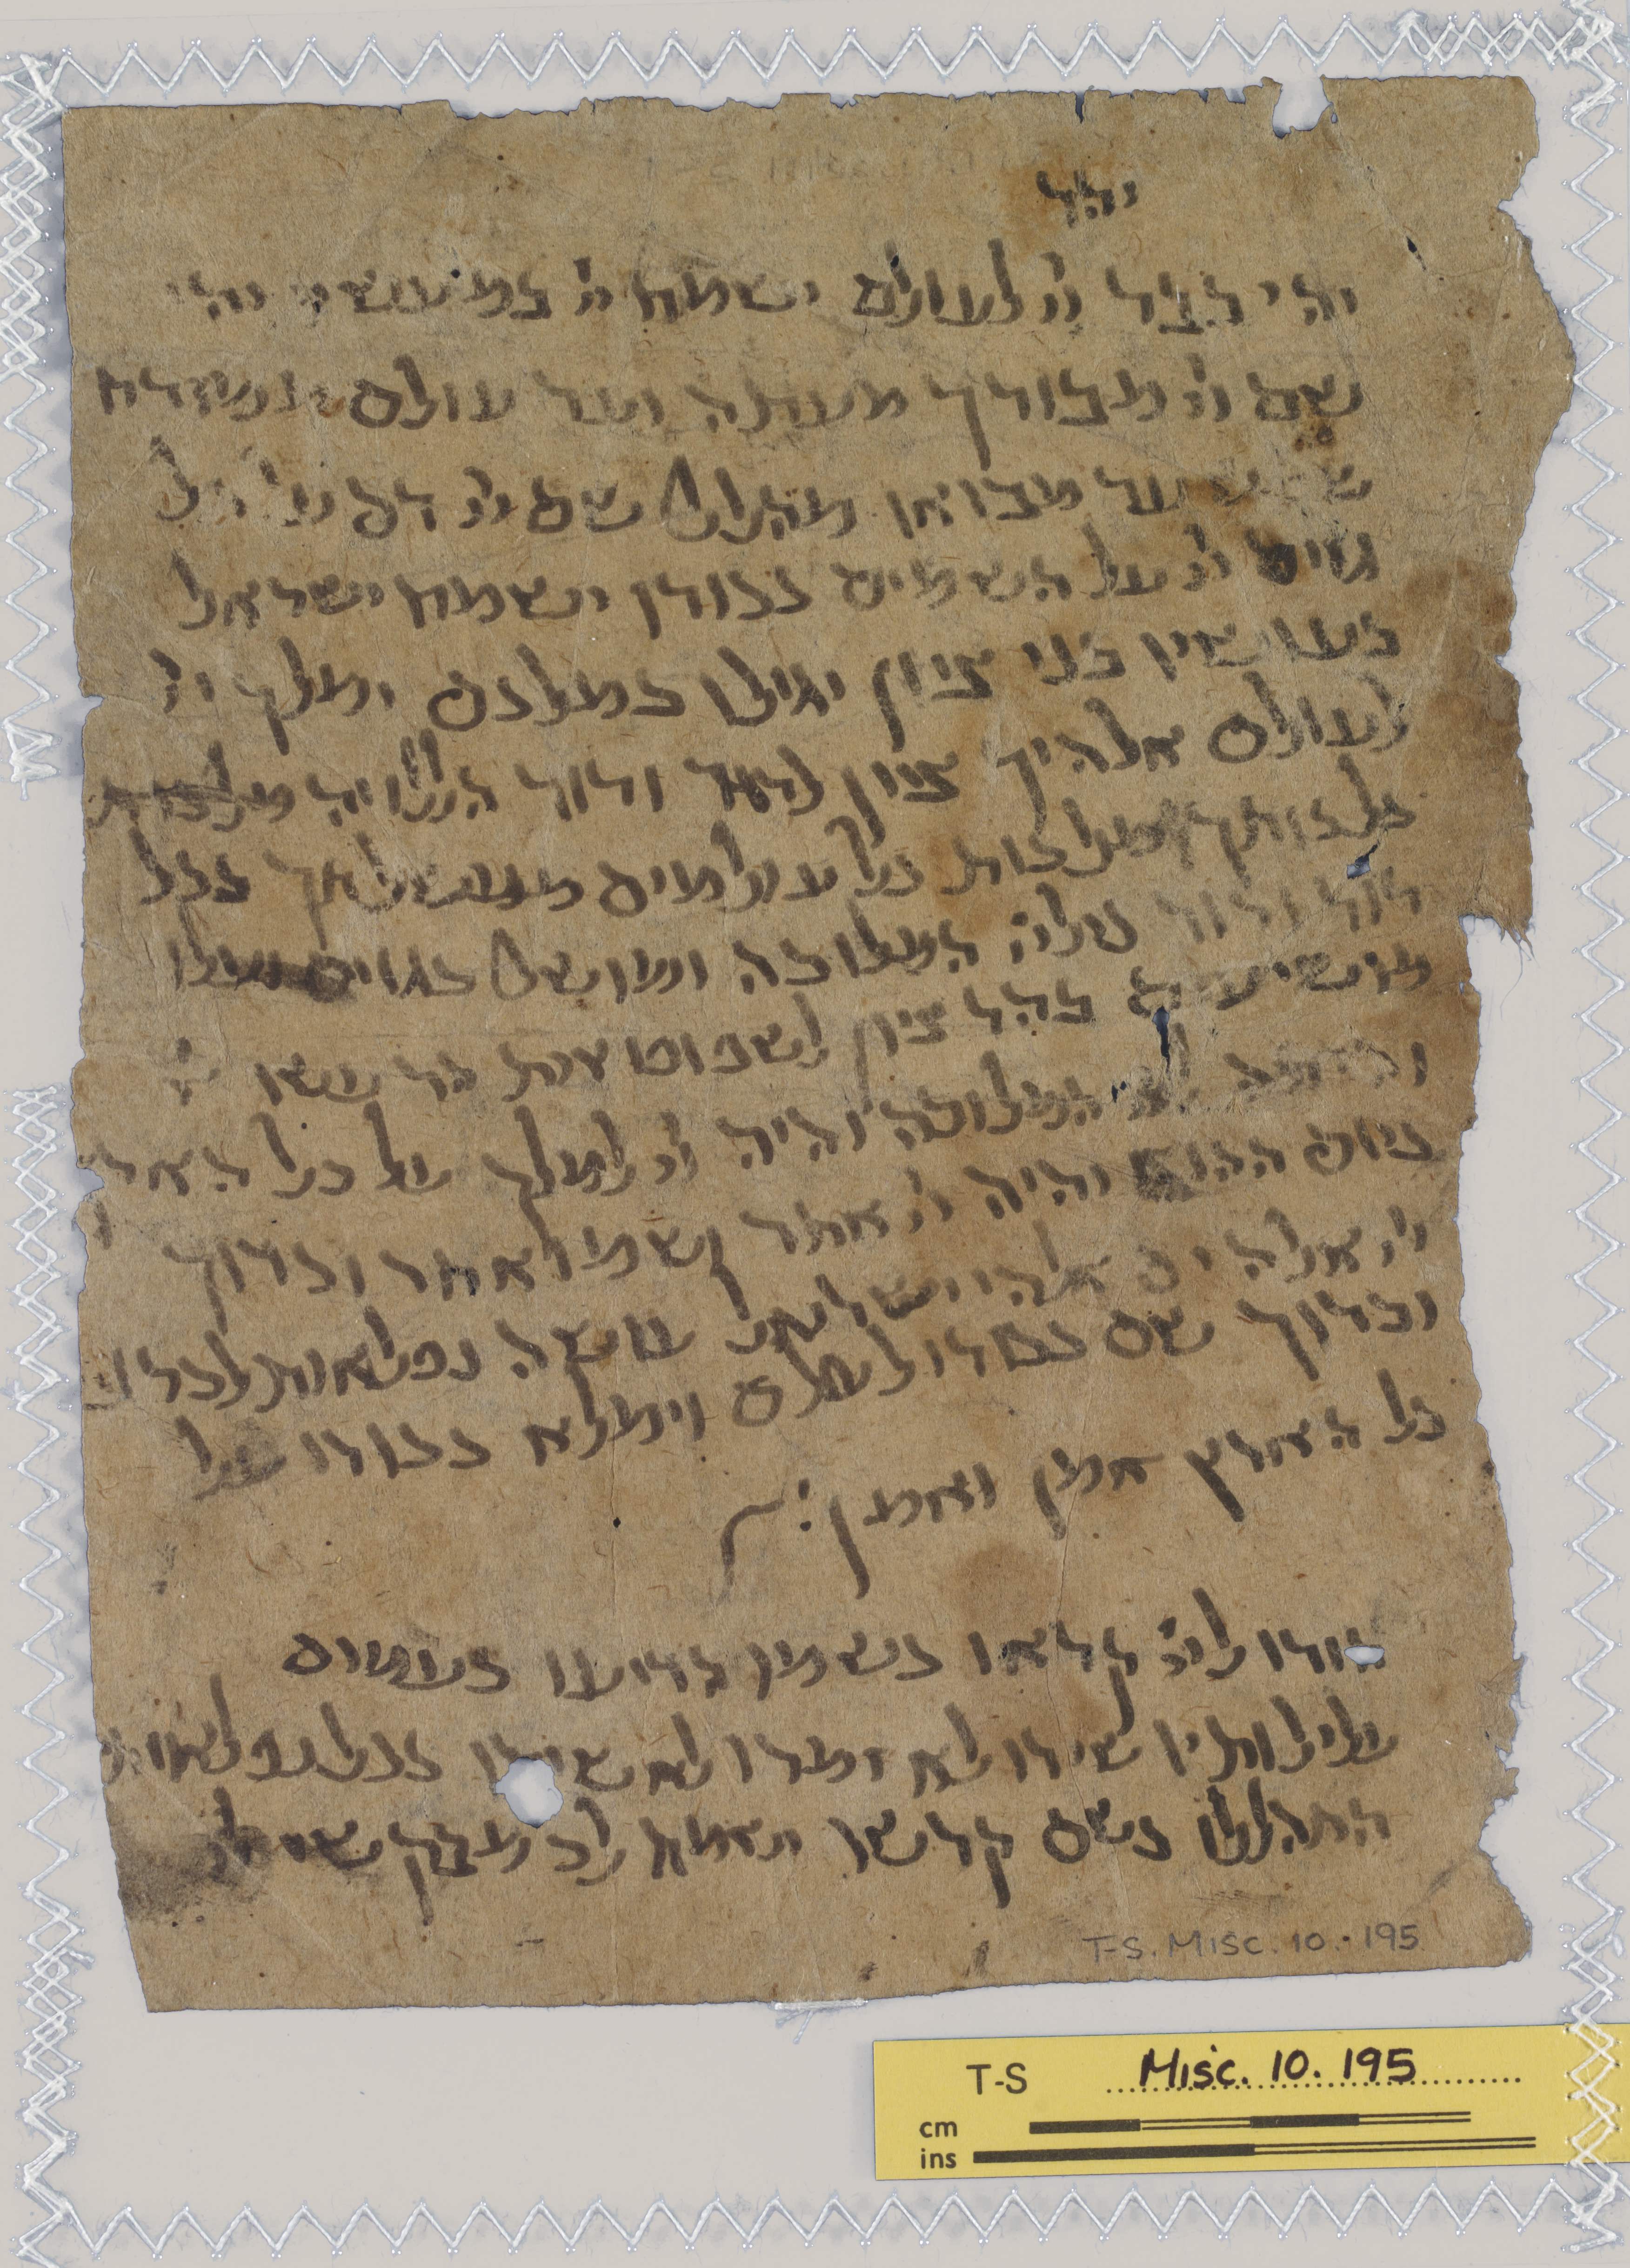 יהי
יהי כבוד יי לעולם ישמח יי במעשיו יהי
שם יי מבורך מעתה ועד עולם ממזרח
שמש עד מבואו מהולל שם יי רם על כל
גוים יי על השמים כבודו ישמח ישראל
בעושיו בני ציון יגילו במלכם ימלך יי
לעולם אלהיך ציון לדור ודור הללויה
מלכותך מלכות כל עולמים וממשלתך בכל
דור ודור כי ליי המלוכה ומושל בגוים ועלו
מושיעים בהר ציון לשפוט את הר עשו
והיתה ליי המלוכה והיה יי למלך על כל הארץ
ביום ההוא יהיה יי אחד ושמו אחד וברוך
יי אלהים אלהי ישראל עושה נפלאות לבדו
וברוך שם כבודו לעולם וימלא כבודו
כל הארץ אמן ואמן
הודו ליי קראו בשמו הודיעו בעמים
עלילותיו שירו לו זמרו לו שיחו בכל נפלאותיו
התהללו בשם קדשו ישמח לב מבקשי יי
T-S. MISC. 10. 195
T-S Misc. 10. 195
cm
ins